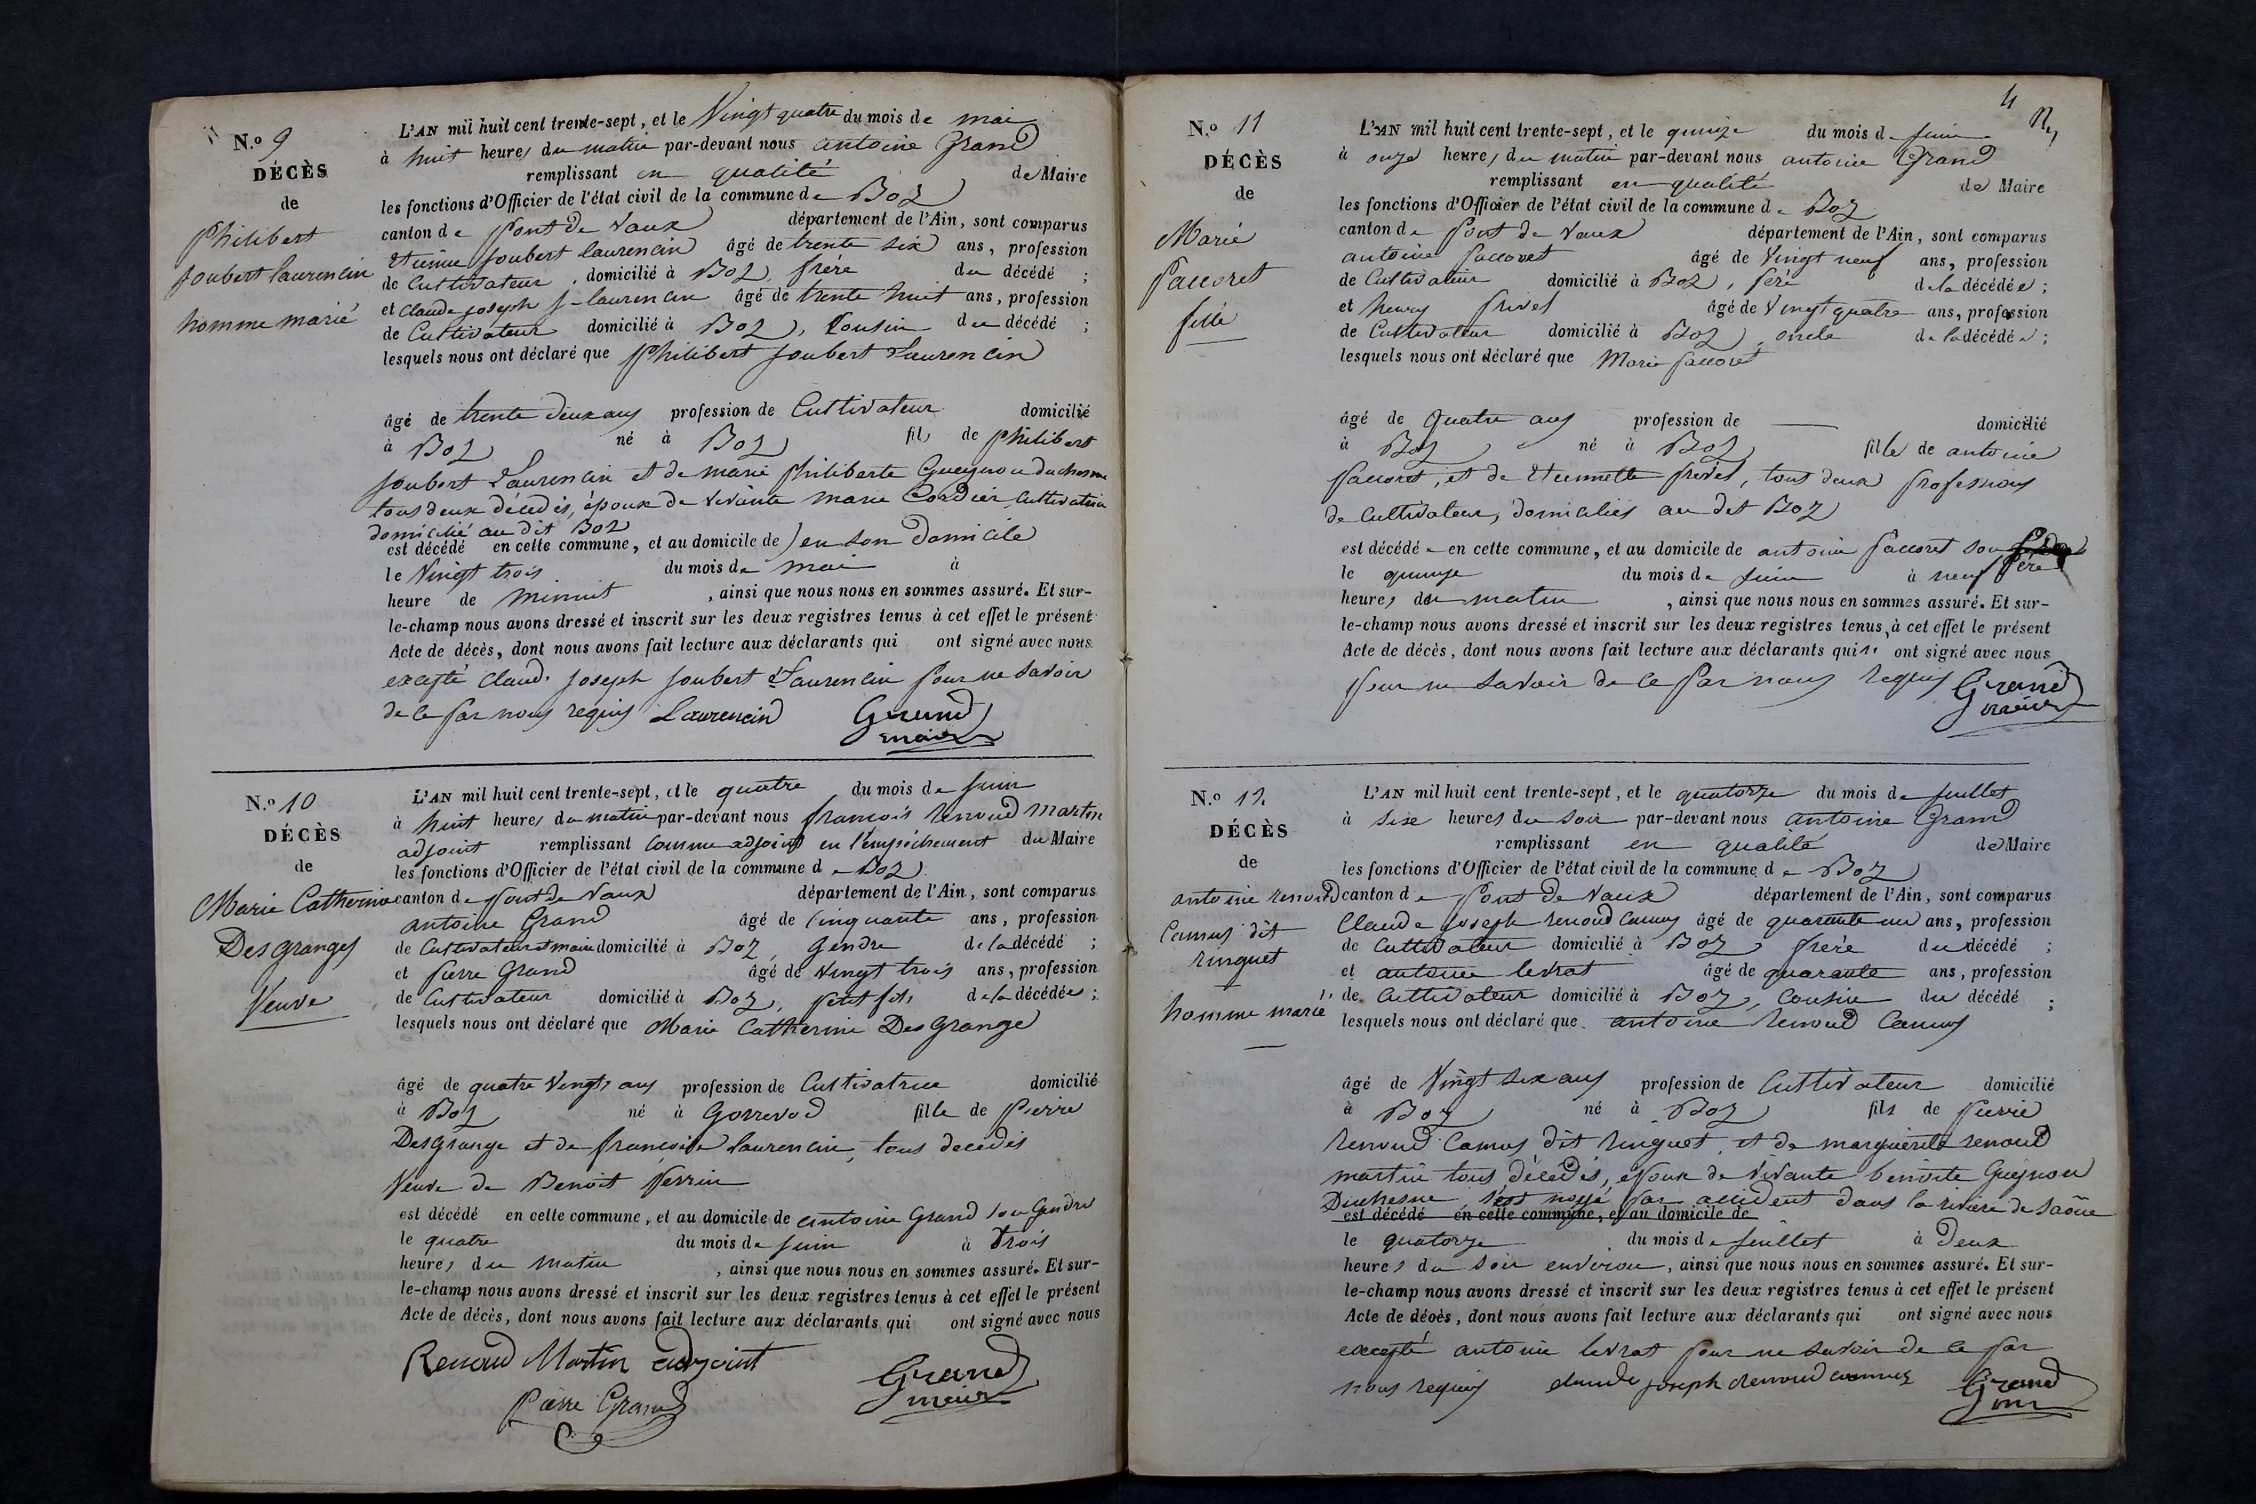 N.o 9
DÉCÈS
de
Philibert
Joubert Laurencin
homme marié
L'AN mil huit cent trente-sept, et le Vingt quatre du mois de mai
à huit heures du matin par-devant nous antoine Grand
remplissant en qualité de Maire
les fonctions d'Officier de l'état civil de la commune de Boz
canton de Pont de Vaux département de l'Ain, sont comparus
Etienne Joubert laurencin âgé de trente six ans, profession
de Cultivateur, domicilié à Boz, frère du décédé ;
et Claude joseph J-laurencin âgé de trente huit ans, profession
de Cultivateur domicilié à Boz, Cousin du décédé ;
lesquels nous ont déclaré que Philibert Joubert Laurencin
âgé de trente deux ans profession de Cultivateur domicilié
à Boz né à Boz fils de philibert
Joubert Laurencin et de marie philiberte Gueynou duchesne
tous deux décédés, époux de vivante marie Cordier, Cultivatrice
domicilié au dit Boz
est décédé en cette commune, et au domicile de en son domicile
le Vingt trois du mois de mai à
heure de minuit, ainsi que nous nous en sommes assuré. Et sur-
le-champ nous avons dressé et inscrit sur les deux registres tenus à cet effet le présent
Acte de décès, dont nous avons fait lecture aux déclarants qui ont signé avec nous
excepté Claude Joseph Joubert Laurencin pour ne savoir
de ce par nous requis Laurencin Grand
maire
N.o 10
DÉCÈS
de
Marie Catherine
Desgranges
Veuve
L'AN mil huit cent trente-sept, et le quatre du mois de Juin
à huit heures du matin par-devant nous françois renoud martin
adjoint remplissant Comme adjoint en l'empêchement du Maire
les fonctions d'Officier de l'état civil de la commune de Boz
canton de Pont de Vaux département de l'Ain, sont comparus
antoine Grand âgé de Cinquante ans, profession
de Cultivateur et maire domicilié à Boz, Gendre de la décédé ;
et Pierre Grand âgé de Vingt trois ans, profession
de Cultivateur domicilié à Boz, petit fils de la décédée ;
lesquels nous ont déclaré que Marie Catherine Des Grange
âgé de quatre Vingts ans profession de Cultivatrice domicilié
à Boz né à Gorrevod fille de Pierre
Desgrange et de françoise laurencin, tous décédés
Veuve de Benoit Perrin
est décédé en cette commune, et au domicile de antoine Grand son Gendre
le quatre du mois de Juin à Trois
heures du Matin, ainsi que nous nous en sommes assuré. Et sur-
le-champ nous avons dressé et inscrit sur les deux registres tenus à cet effet le présent
Acte de décès, dont nous avons fait lecture aux déclarants qui ont signé avec nous
Renoud Martin adjoint Grand
maire
Pierre Grand
4
N.o 11
DÉCÈS
de
Marie
Paccoret
fille
L'AN mil huit cent trente-sept, et le quinze du mois de Juin
à onze heures du matin par-devant nous antoine Grand
remplissant en qualité de Maire
les fonctions d'Officier de l'état civil de la commune de Boz
canton de Pont de Vaux département de l'Ain, sont comparus
antoine Paccoret âgé de Vingt neuf ans, profession
de Cultivateur domicilié à Boz, Père de la décédée ;
et henry privet âgé de Vingt quatre ans, profession
de Cultivateur domicilié à Boz, oncle de la décédée ;
lesquels nous ont déclaré que Marie Paccoret
âgé de quatre ans profession de domicilié
à Boz né à Boz fille de antoine
Paccoret, et de Etiennette Privet, tous deux professions
de Cultivateur, domiciliés au dit Boz
est décédé e en cette commune, et au domicile de antoine Paccoret son
père
le quinze du mois de Juin à neuf
heures du matin, ainsi que nous nous en sommes assuré. Et sur-
le-champ nous avons dressé et inscrit sur les deux registres tenus à cet effet le présent
Acte de décès, dont nous avons fait lecture aux déclarants qui n' ont signé avec nous
pour ne savoir de ce par nous requis Grand
maire
N.o 12
DÉCÈS
de
antoine renoud
Camus dit
ringuet
homme marié
L'AN mil huit cent trente-sept, et le quatorze du mois de Juillet
à six heures du soir par-devant nous antoine Grand
remplissant en qualité de Maire
les fonctions d'Officier de l'état civil de la commune de Boz
canton de Pont de Vaux département de l'Ain, sont comparus
Claude Joseph renoud Camus âgé de quarante un ans, profession
de Cultivateur domicilié à Boz, frère du décédé ;
et antoine levrat âgé de quarante ans, profession
de Cultivateur domicilié à Boz, Cousin du décédé ;
lesquels nous ont déclaré que antoine renoud Camus
âgé de Vingt six ans profession de Cultivateur domicilié
à Boz né à Boz fils de Pierre
renoud Camus dit ringuet, et de marguerite renoud
martin tous décédés, époux de vivante benoite Gueynou
Duchesne, s'est noyé par accident dans la rivière de saône
est décédé en cette commune, et au domicile de
le quatorze du mois de Juillet à deux
heures du soir environ, ainsi que nous nous en sommes assuré. Et sur-
le-champ nous avons dressé et inscrit sur les deux registres tenus à cet effet le présent
Acte de décès, dont nous avons fait lecture aux déclarants qui ont signé avec nous
excepté antoine levrat pour ne savoir de ce par
nous requis claude joseph renoud camus Grand